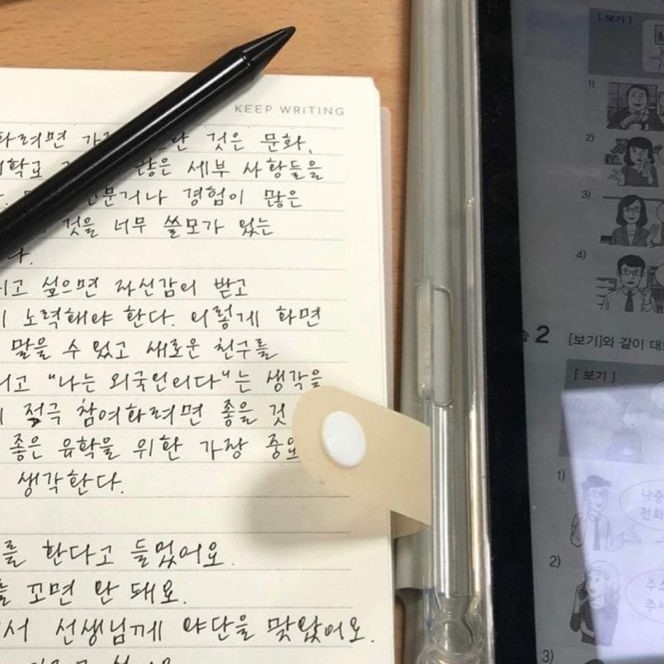 KEEP WRITING
하려면 것은 문화,
세부 사항들을
경험이 많은
것을 너무 쓸모가 있는
다.
싶으면 자신감이 받고
노력해야 한다. 이렇게 하면
말을 수 있고 새로운 친구를
"나는 외국인이다"는 생각을
적극 참여하려면 좋을 것
좋은 유학을 위한 가장
생각한다.
를 한다고 들었어요.
꼬면 안 돼요.
서 선생님께 야단을 맞았어요.
[보기]
1)
2)
3)
4)
2 [보기]와 같이
[보기]
1)
2)
3)